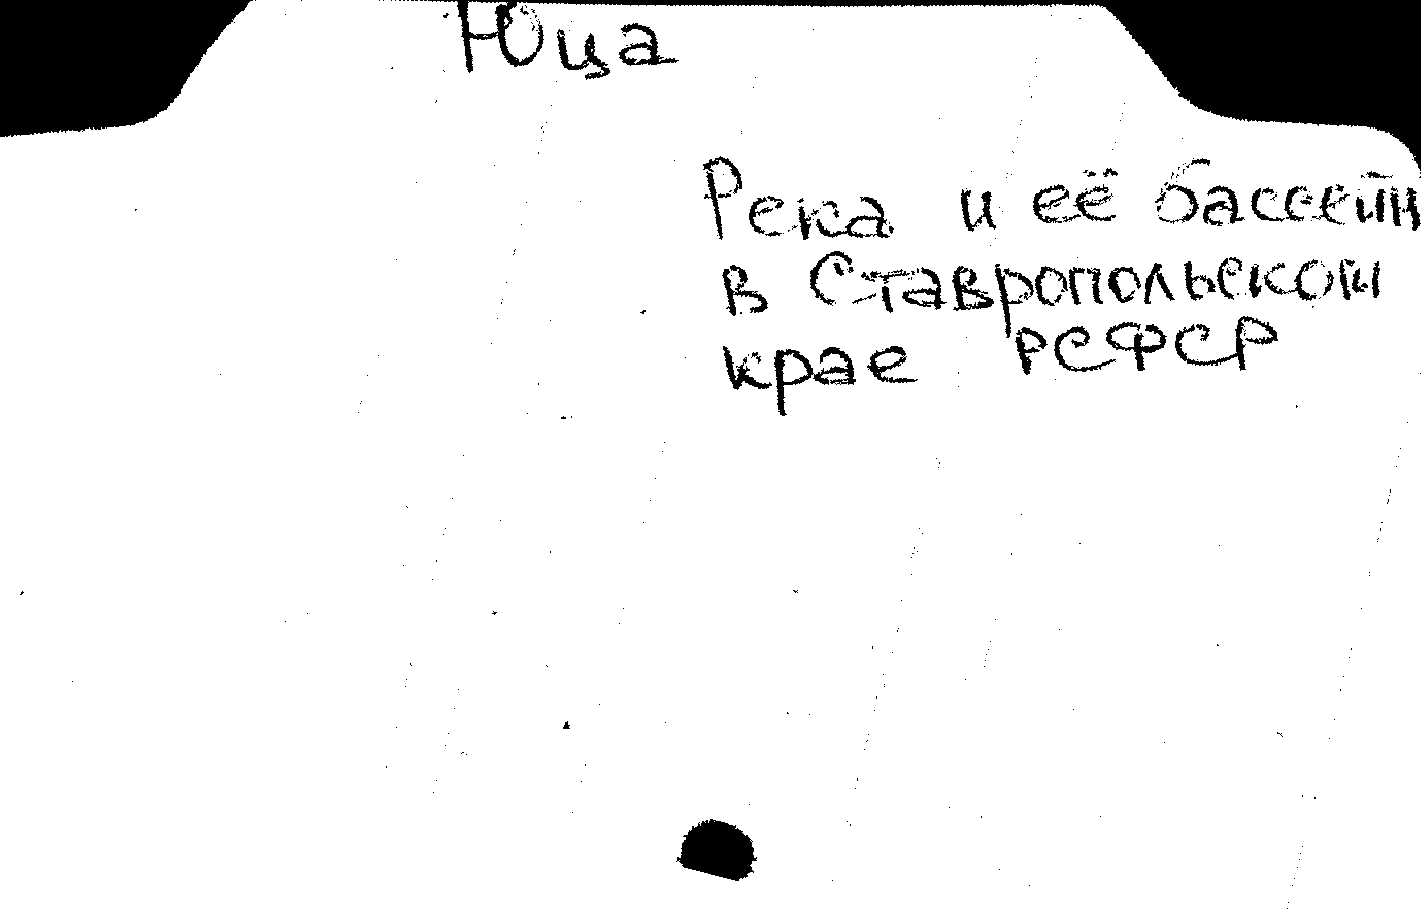 Юца
Река и её бассейн
в Ставропольском
крае РСФСР